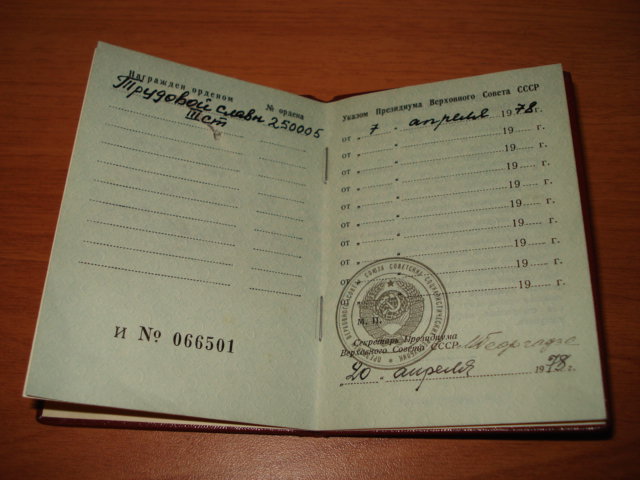 Награжден орденом
№ ордена
Трудовой славы 250005
III ст
И № 066501
Указом Президиума Верховного Совета СССР
от „ 7 " апреля 1978 г.
от „ " 19 г.
от „ " 19 г.
от „ " 19 г.
от „ " 19 г.
от „ " 19 г.
от „ " 19 г.
от „ " 19 г.
от „ " 19 г.
М. П.
Секретарь Президиума
Верховного Совета СССР
„20 " апреля 1978 г.